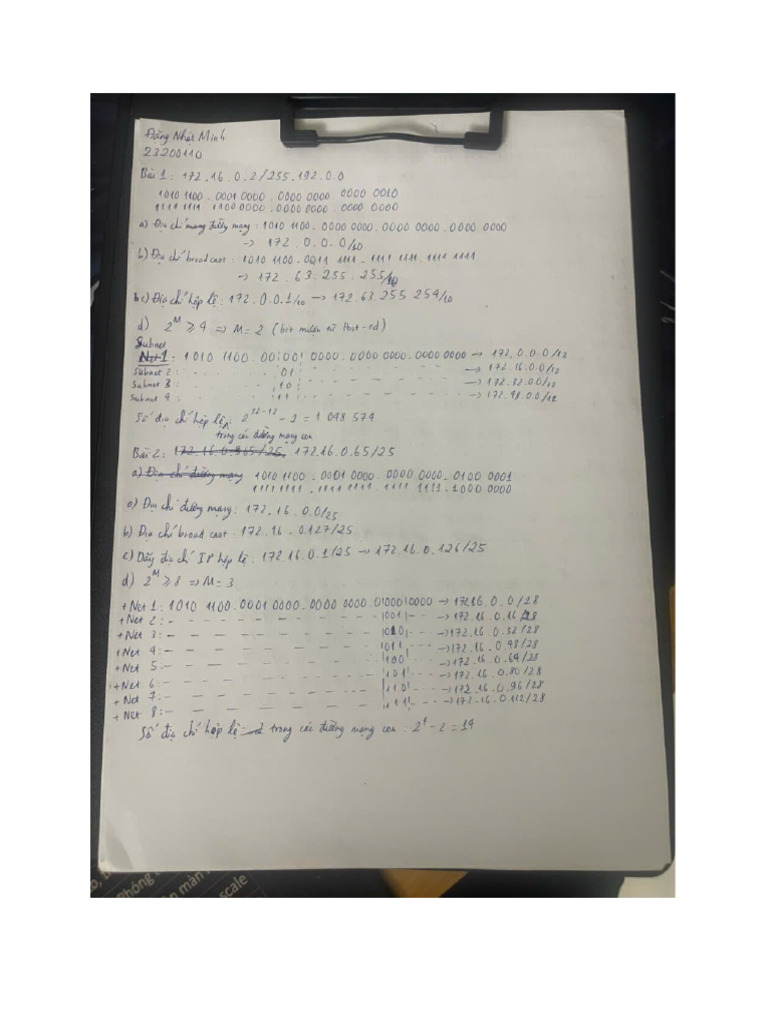 Đặng Nhật Minh
23200110
Bài 1: 172.16.0.2/255.192.0.0
1010 1100 . 0001 0000 . 0000 0000 . 0000 0010
1111 1111 . 1100 0000 . 0000 0000 . 0000 0000
a) Địa chỉ mạng đường mạng : 1010 1100 . 0000 0000 . 0000 0000 . 0000 0000
-> 172.0.0.0/10
b) Địa chỉ broad cast : 1010 1100 . 0011 1111 . 1111 1111 . 1111 1111
-> 172.63.255.255/10
c) Địa chỉ hợp lệ : 172.0.0.1/10 -> 172.63.255.254/10
d) 2^M ≥ 4 => M = 2 (bit mượn từ Host-id)
Subnet
Net 1 : 1010 1100 . 00 00 0000 . 0000 0000 . 0000 0000 -> 172.0.0.0/12
Subnet 2 : 01 -> 172.16.0.0/12
Subnet 3 : 10 -> 172.32.0.0/12
Subnet 4 : 11 -> 172.48.0.0/12
Số địa chỉ hợp lệ : 2^32-12 - 2 = 1 048 574
trong các đường mạng con
Bài 2: 172.16.0.65/25, 172.16.0.65/25
a) Địa chỉ đường mạng 1010 1100 . 0001 0000 . 0000 0000 . 0100 0001
1111 1111 . 1111 1111 . 1111 1111 . 1000 0000
a) Địa chỉ đường mạng : 172.16.0.0/25
b) Địa chỉ broad cast : 172.16.0.127/25
c) Dãy địa chỉ IP hợp lệ : 172.16.0.1/25 -> 172.16.0.126/25
d) 2^M ≥ 8 => M = 3
+ Net 1 : 1010 1100 . 0001 0000 . 0000 0000 . 0|000|0000 -> 172.16.0.0/28
+ Net 2 : - |001| -> 172.16.0.16/28
+ Net 3 : - |010| -> 172.16.0.32/28
+ Net 4 : - |011| -> 172.16.0.48/28
+ Net 5 : - |100| -> 172.16.0.64/28
+ Net 6 : - |101| -> 172.16.0.80/28
+ Net 7 : - |110| -> 172.16.0.96/28
+ Net 8 : - |111| -> 172.16.0.112/28
Số địa chỉ hợp lệ trong các đường mạng con : 2^4 - 2 = 14
Phòng
màn
scale